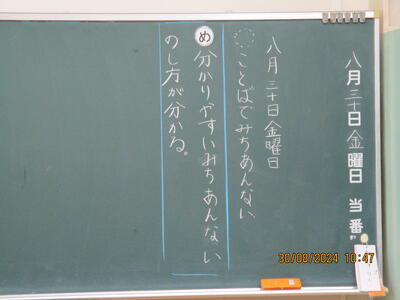 八月三十日金曜日 当番
八月三十日金曜日
ことばでみちあんない
め 分かりやすいみちあんない
のし方が分かる。
30/08/2024 10:47